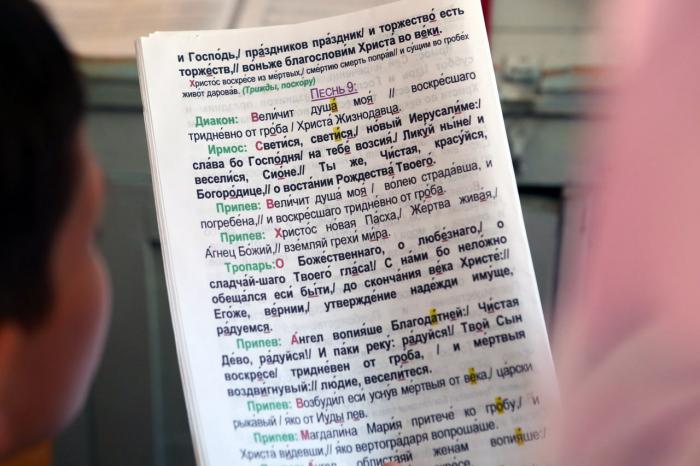 и Госпо́дь,/ пра́здников пра́здник/ и торжество́ есть
торже́ств,// во́ньже благослови́м Христа́ во ве́ки.
Христо́с воскре́се из ме́ртвых,/ сме́ртию смерть попра́в/ и су́щим во гробе́х
живо́т дарова́в. (Трижды, поскору)
Песнь 9:
Диакон: Вели́чит душа́ моя́ // воскре́сшаго
тридне́вно от гро́ба/ Христа́ Жизнода́вца.
Ирмос: Свети́ся, свети́ся,/ но́вый Иерусали́ме:/
сла́ва бо Госпо́дня/ на тебе́ возсия́./ Лику́й ны́не/ и
весели́ся, Сио́не./ Ты же, Чи́стая, красу́йся,
Богоро́дице,// о воста́нии Рождества́ Твоего́.
Припев: Вели́чит душа́ моя́/ во́лею страда́вша, и
погребе́на,// и воскре́сшаго тридне́вно от гро́ба.
Припев: Христо́с но́вая Па́сха,/ Же́ртва жива́я,/
А́гнец Бо́жий,// взе́мляй грехи́ ми́ра.
Тропарь:О Боже́ственнаго, о любе́знаго,/ о
сладча́й-шаго Твоего́ гла́са!/ С на́ми бо нело́жно
обеща́лся еси́ бы́ти,/ до сконча́ния ве́ка Христе́://
Его́же, ве́рнии,/ утвержде́ние наде́жди иму́ще,
ра́дуемся.
Припев: А́нгел вопия́ше Благода́тней:/ Чи́стая
Де́во, ра́дуйся!/ И па́ки реку́: ра́дуйся!/ Твой Сын
воскре́се/ тридне́вен от гро́ба, / и ме́ртвыя
воздви́гнувый:// лю́дие, весели́теся.
Припев: Возбуди́л еси́ усну́в ме́ртвыя от ве́ка,/ ца́рски
рыка́вый/ я́ко от Иу́ды лев.
Припев: Магдали́на Мари́я притече́ ко гро́бу,/ и
Христа́ ви́девши// я́ко вертогра́даря вопроша́ше.
Припев: А́нгел облиста́яй жена́м вопия́ше:/